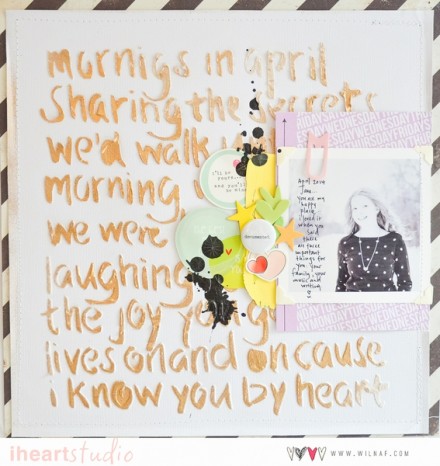 mornigs in april
Sharing the secrets
we'd walk
morning,
we were
aughing
the joy you g
lives on and on cause
i know you by heart
April
you are my
happy
place
when you
said
there
are three
important
things for
you your
family, your
music and
writing
iheartstudio
WWW.WILNAF.COM